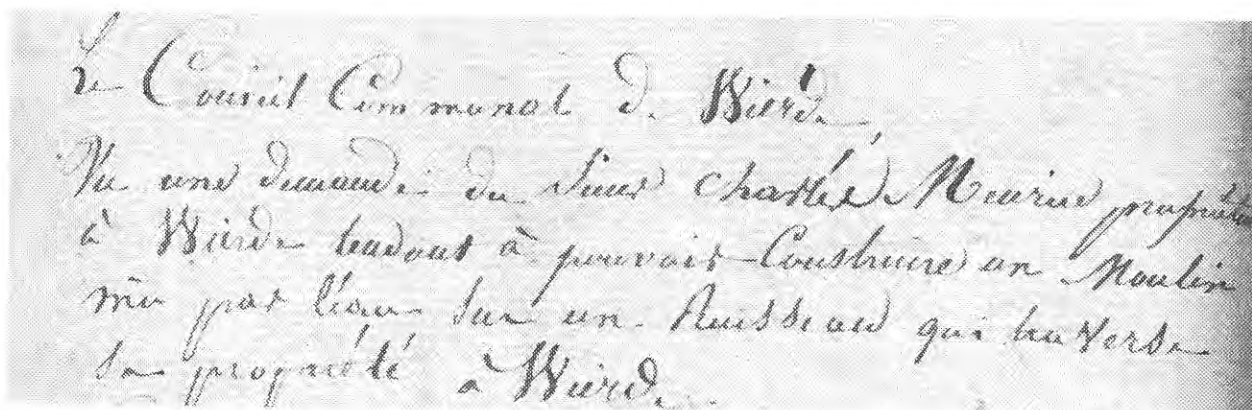 Le Conseil Communal de Wierde,
Vu une demande du Sieur Charles Meurice propriétaire
à Wierde tendant à pouvoir Construire un Moulin
mu par l'eau sur un Ruisseau qui traverse
sa propriété à Wierde.